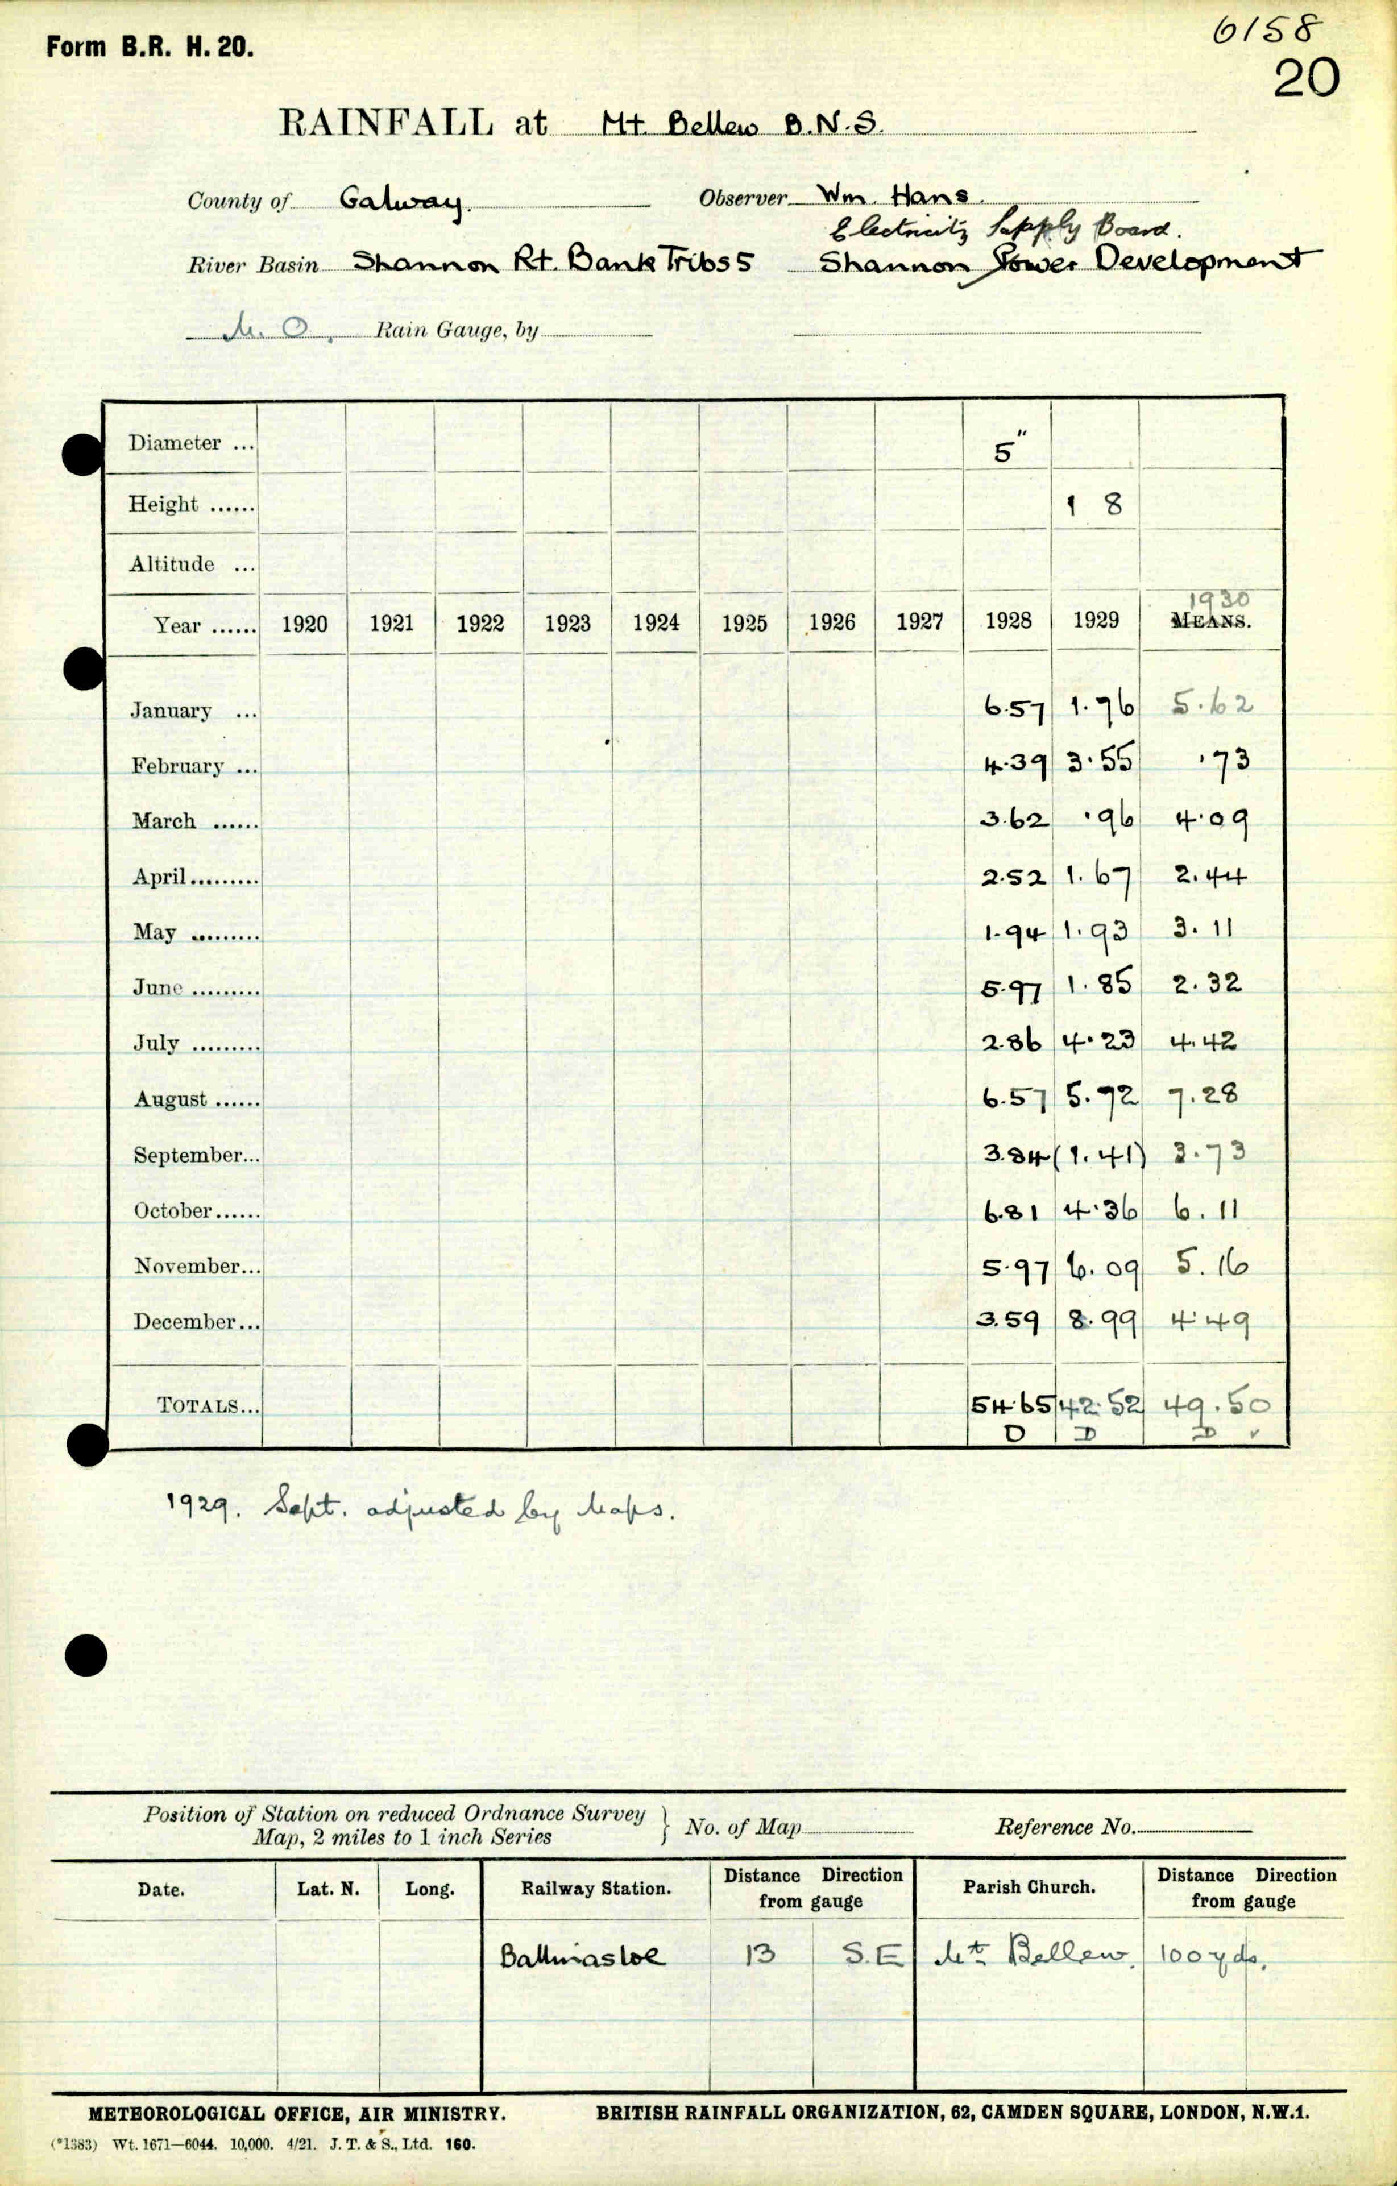 6158
Form B.R. H. 20.
20
RAINFALL at Mt Bellew B.N.S.
County of Galway. Observer Wm. Hans.
Electricity Supply Board.
River Basin Shannon Rt. Bank Tribs 5 Shannon Power Development
M.O. Rain Gauge, by
Diameter ... 5"
Height ...... 1 8
Altitude ...
1930
Year ...... 1920 1921 1922 1923 1924 1925 1926 1927 1928 1929 MEANS.
January ... 6.57 1.76 5.62
February ... 4.39 3.55 .73
March ...... 3.62 .96 4.09
April ......... 2.52 1.67 2.44
May ......... 1.94 1.93 3.11
June ......... 5.97 1.85 2.32
July ......... 2.86 4.23 4.42
August ...... 6.57 5.72 7.28
September... 3.84 (1.41) 3.73
October...... 6.81 4.36 6.11
November... 5.97 6.09 5.16
December... 3.59 8.99 4.49
TOTALS... 54.65 42.52 49.50
D D D ✓
1929. Sept. adjusted by Maps.
Position of Station on reduced Ordnance Survey
Map, 2 miles to 1 inch Series } No. of Map Reference No.
Date. Lat. N. Long. Railway Station. Distance Direction from gauge Parish Church. Distance Direction from gauge
Ballinasloe 13 S.E Mt Bellew. 100 yds.
METEOROLOGICAL OFFICE, AIR MINISTRY. BRITISH RAINFALL ORGANIZATION, 62, CAMDEN SQUARE, LONDON, N.W.1.
(*1383) Wt. 1671—6044. 10,000. 4/21. J. T. & S., Ltd. 160.